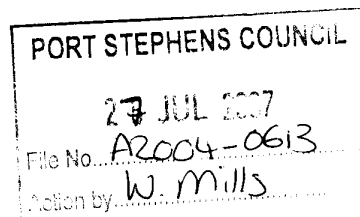 PORT STEPHENS COUNCIL
27 JUL 2007
File No. A2004-0613
Action by W. Mills